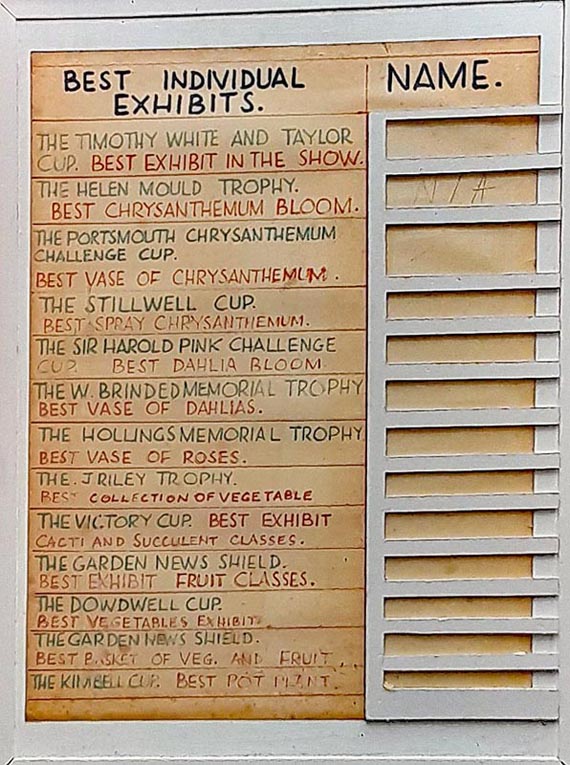 BEST INDIVIDUAL
EXHIBITS.
NAME.
THE TIMOTHY WHITE AND TAYLOR
CUP. BEST EXHIBIT IN THE SHOW.
THE HELEN MOULD TROPHY.
N/A
BEST CHRYSANTHEMUM BLOOM.
THE PORTSMOUTH CHRYSANTHEMUM
CHALLENGE CUP.
BEST VASE OF CHRYSANTHEMUM.
THE STILLWELL CUP.
BEST SPRAY CHRYSANTHEMUM.
THE SIR HAROLD PINK CHALLENGE
CUP. BEST DAHLIA BLOOM.
THE W. BRINDED MEMORIAL TROPHY
BEST VASE OF DAHLIAS.
THE HOLLINGS MEMORIAL TROPHY
BEST VASE OF ROSES.
THE J RILEY TROPHY.
BEST COLLECTION OF VEGETABLE
THE VICTORY CUP. BEST EXHIBIT
CACTI AND SUCCULENT CLASSES.
THE GARDEN NEWS SHIELD.
BEST EXHIBIT FRUIT CLASSES.
THE DOWDWELL CUP.
BEST VEGETABLES EXHIBIT.
THE GARDEN NEWS SHIELD.
BEST BASKET OF VEG. AND FRUIT.
THE KIMBELL CUP. BEST POT PLANT.